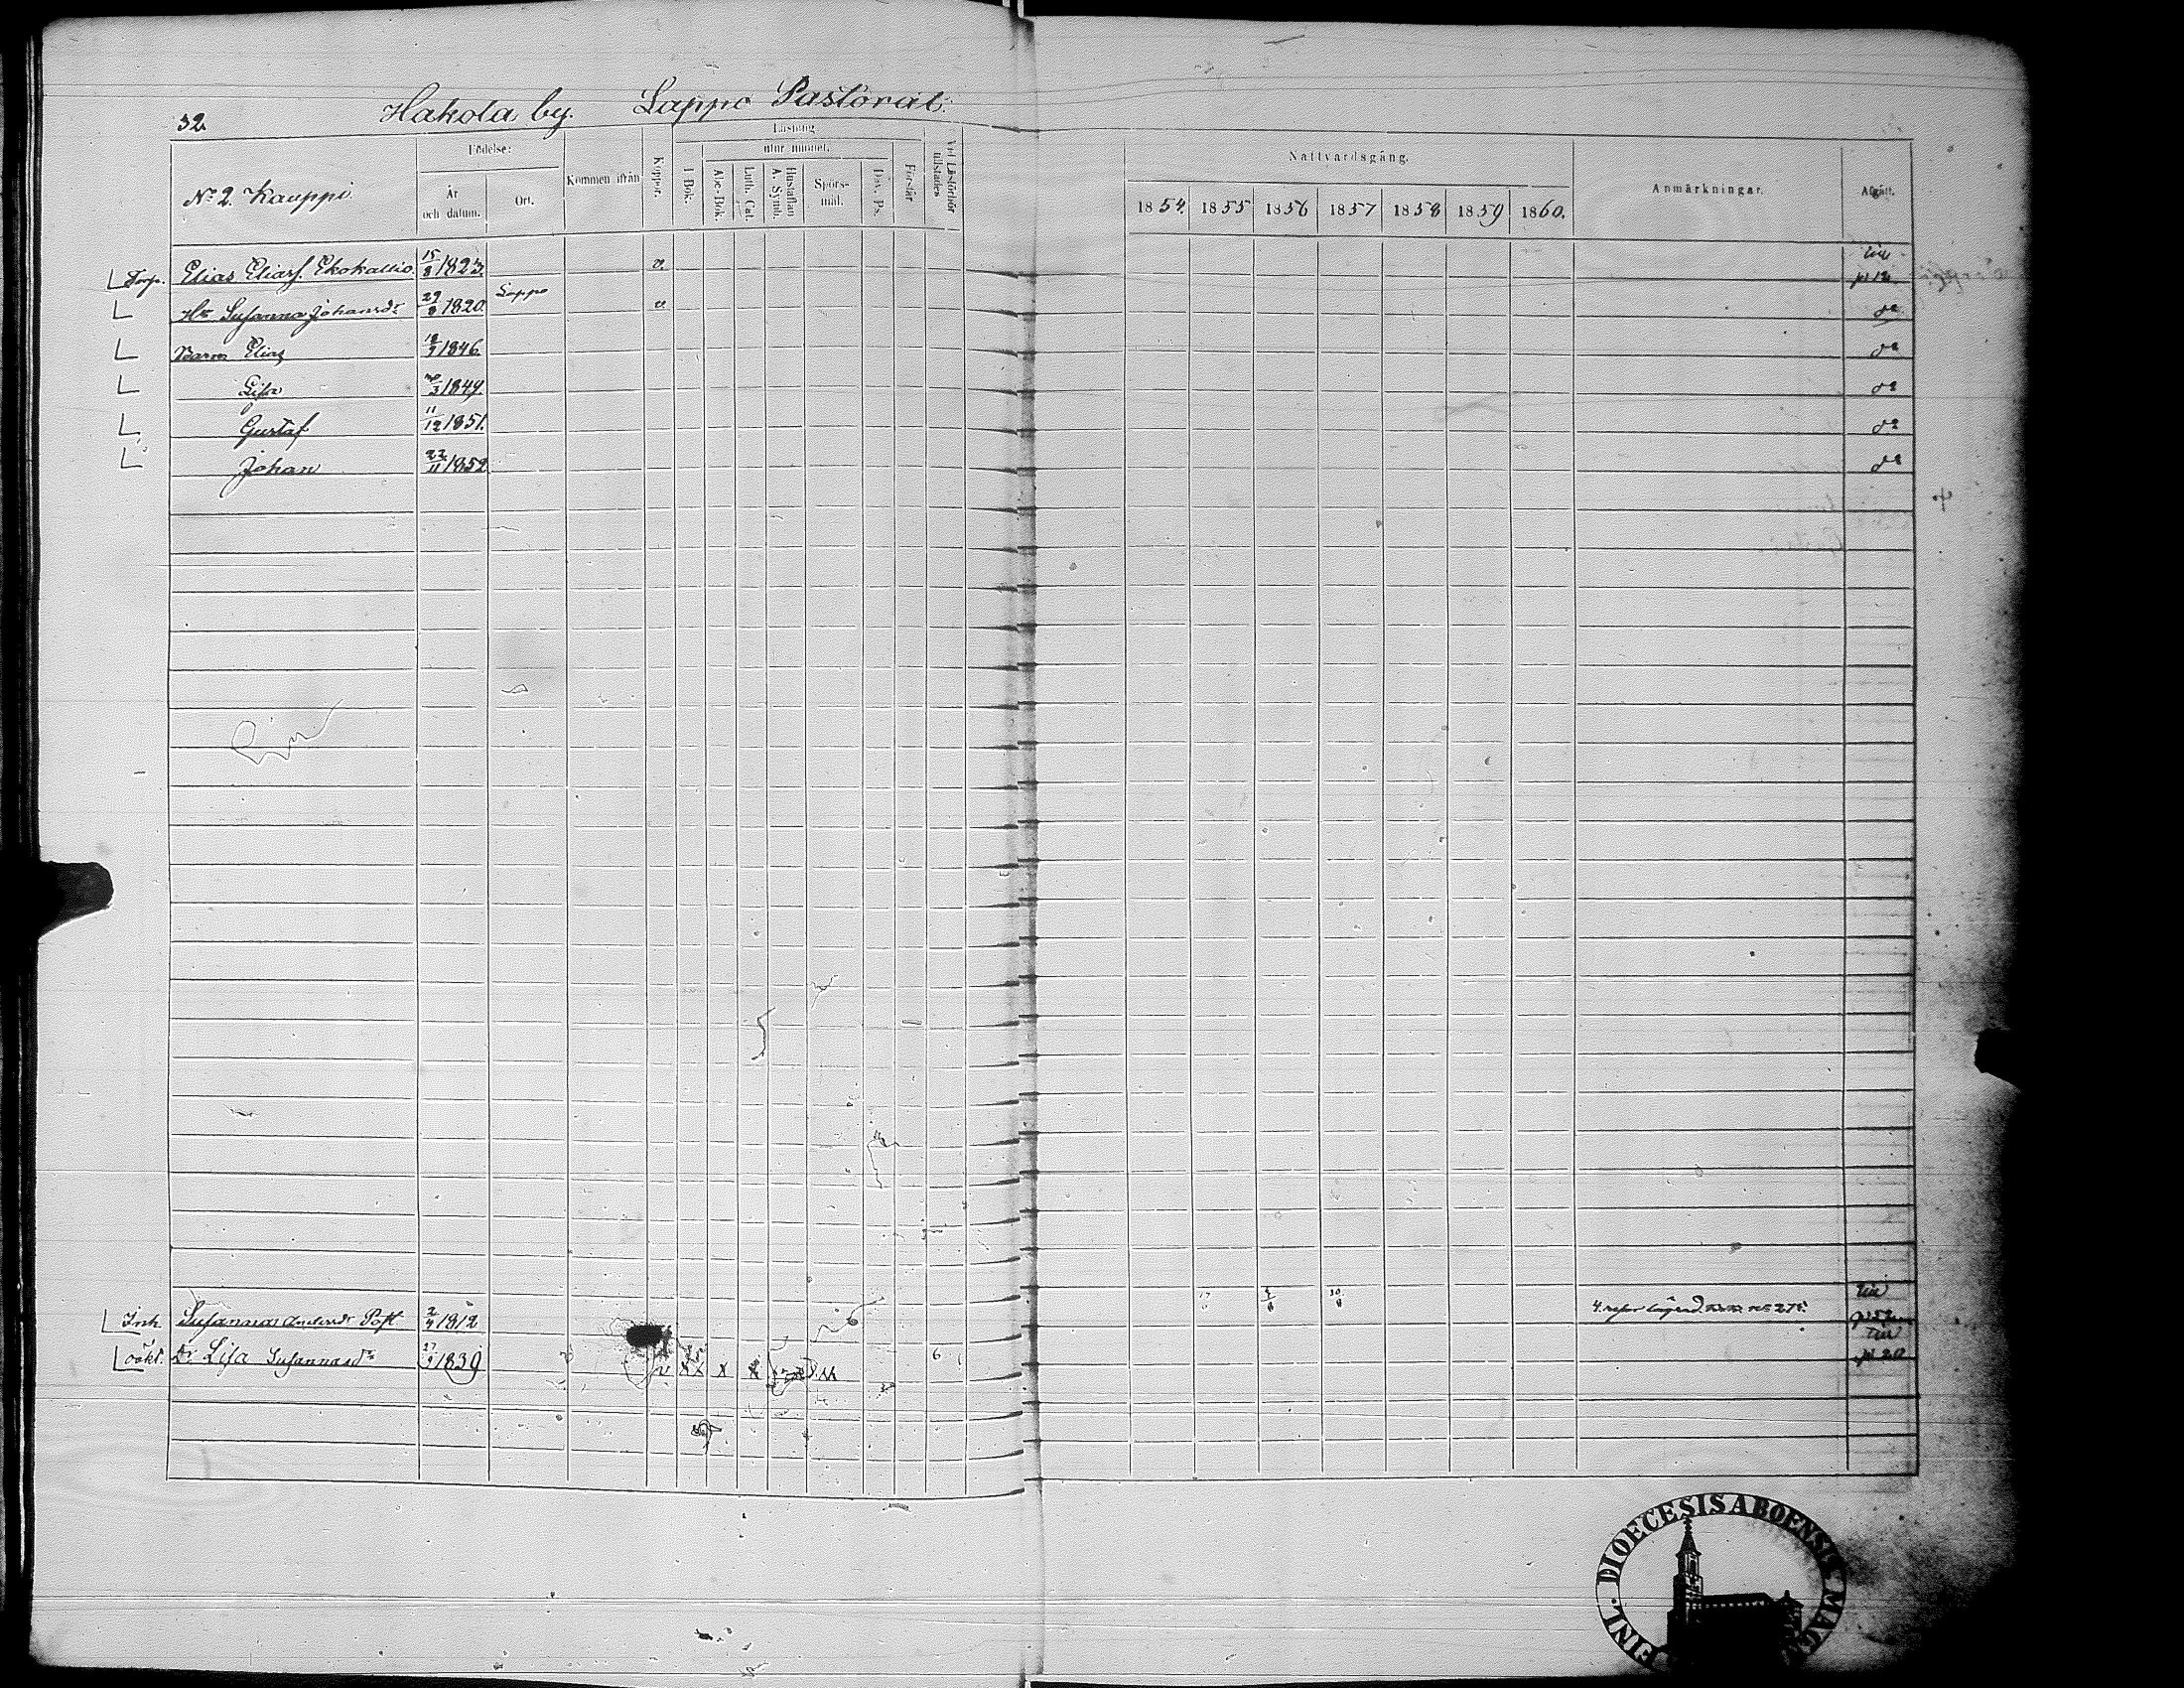 32.
Hakola by. Lappo Pastorat.
No 2. Kauppi.
Födelse:
År och datum.
Ort.
Kommen ifrån
Koppor.
Läsning
utur minnet.
I Bok.
Abc-Bok.
Luth. Cat.
Hustaflan A. Symb.
Spörs-mål.
Dav. Ps.
Förstår.
Vid Läsförhör tillstädes
Nattvardsgång.
1854. 1855 1856 1857 1858 1859 1860.
Anmärkningar.
Afgått.
Torp. Elias Eliass. Ekokallio 15/8 1823. v.
Hu Susanna Johansdr 29/8 1820. Lappo v.
Barn Elias 1846
Lisa 1849.
Gustaf 11/12 1851.
Johan 22/11 1852
Inh. Susanna 2/4 1812
oäkt. Dr. Lisa Susannasdr 1839 v x x x x 6
DIOECESIS ABOENSIS
FINL.